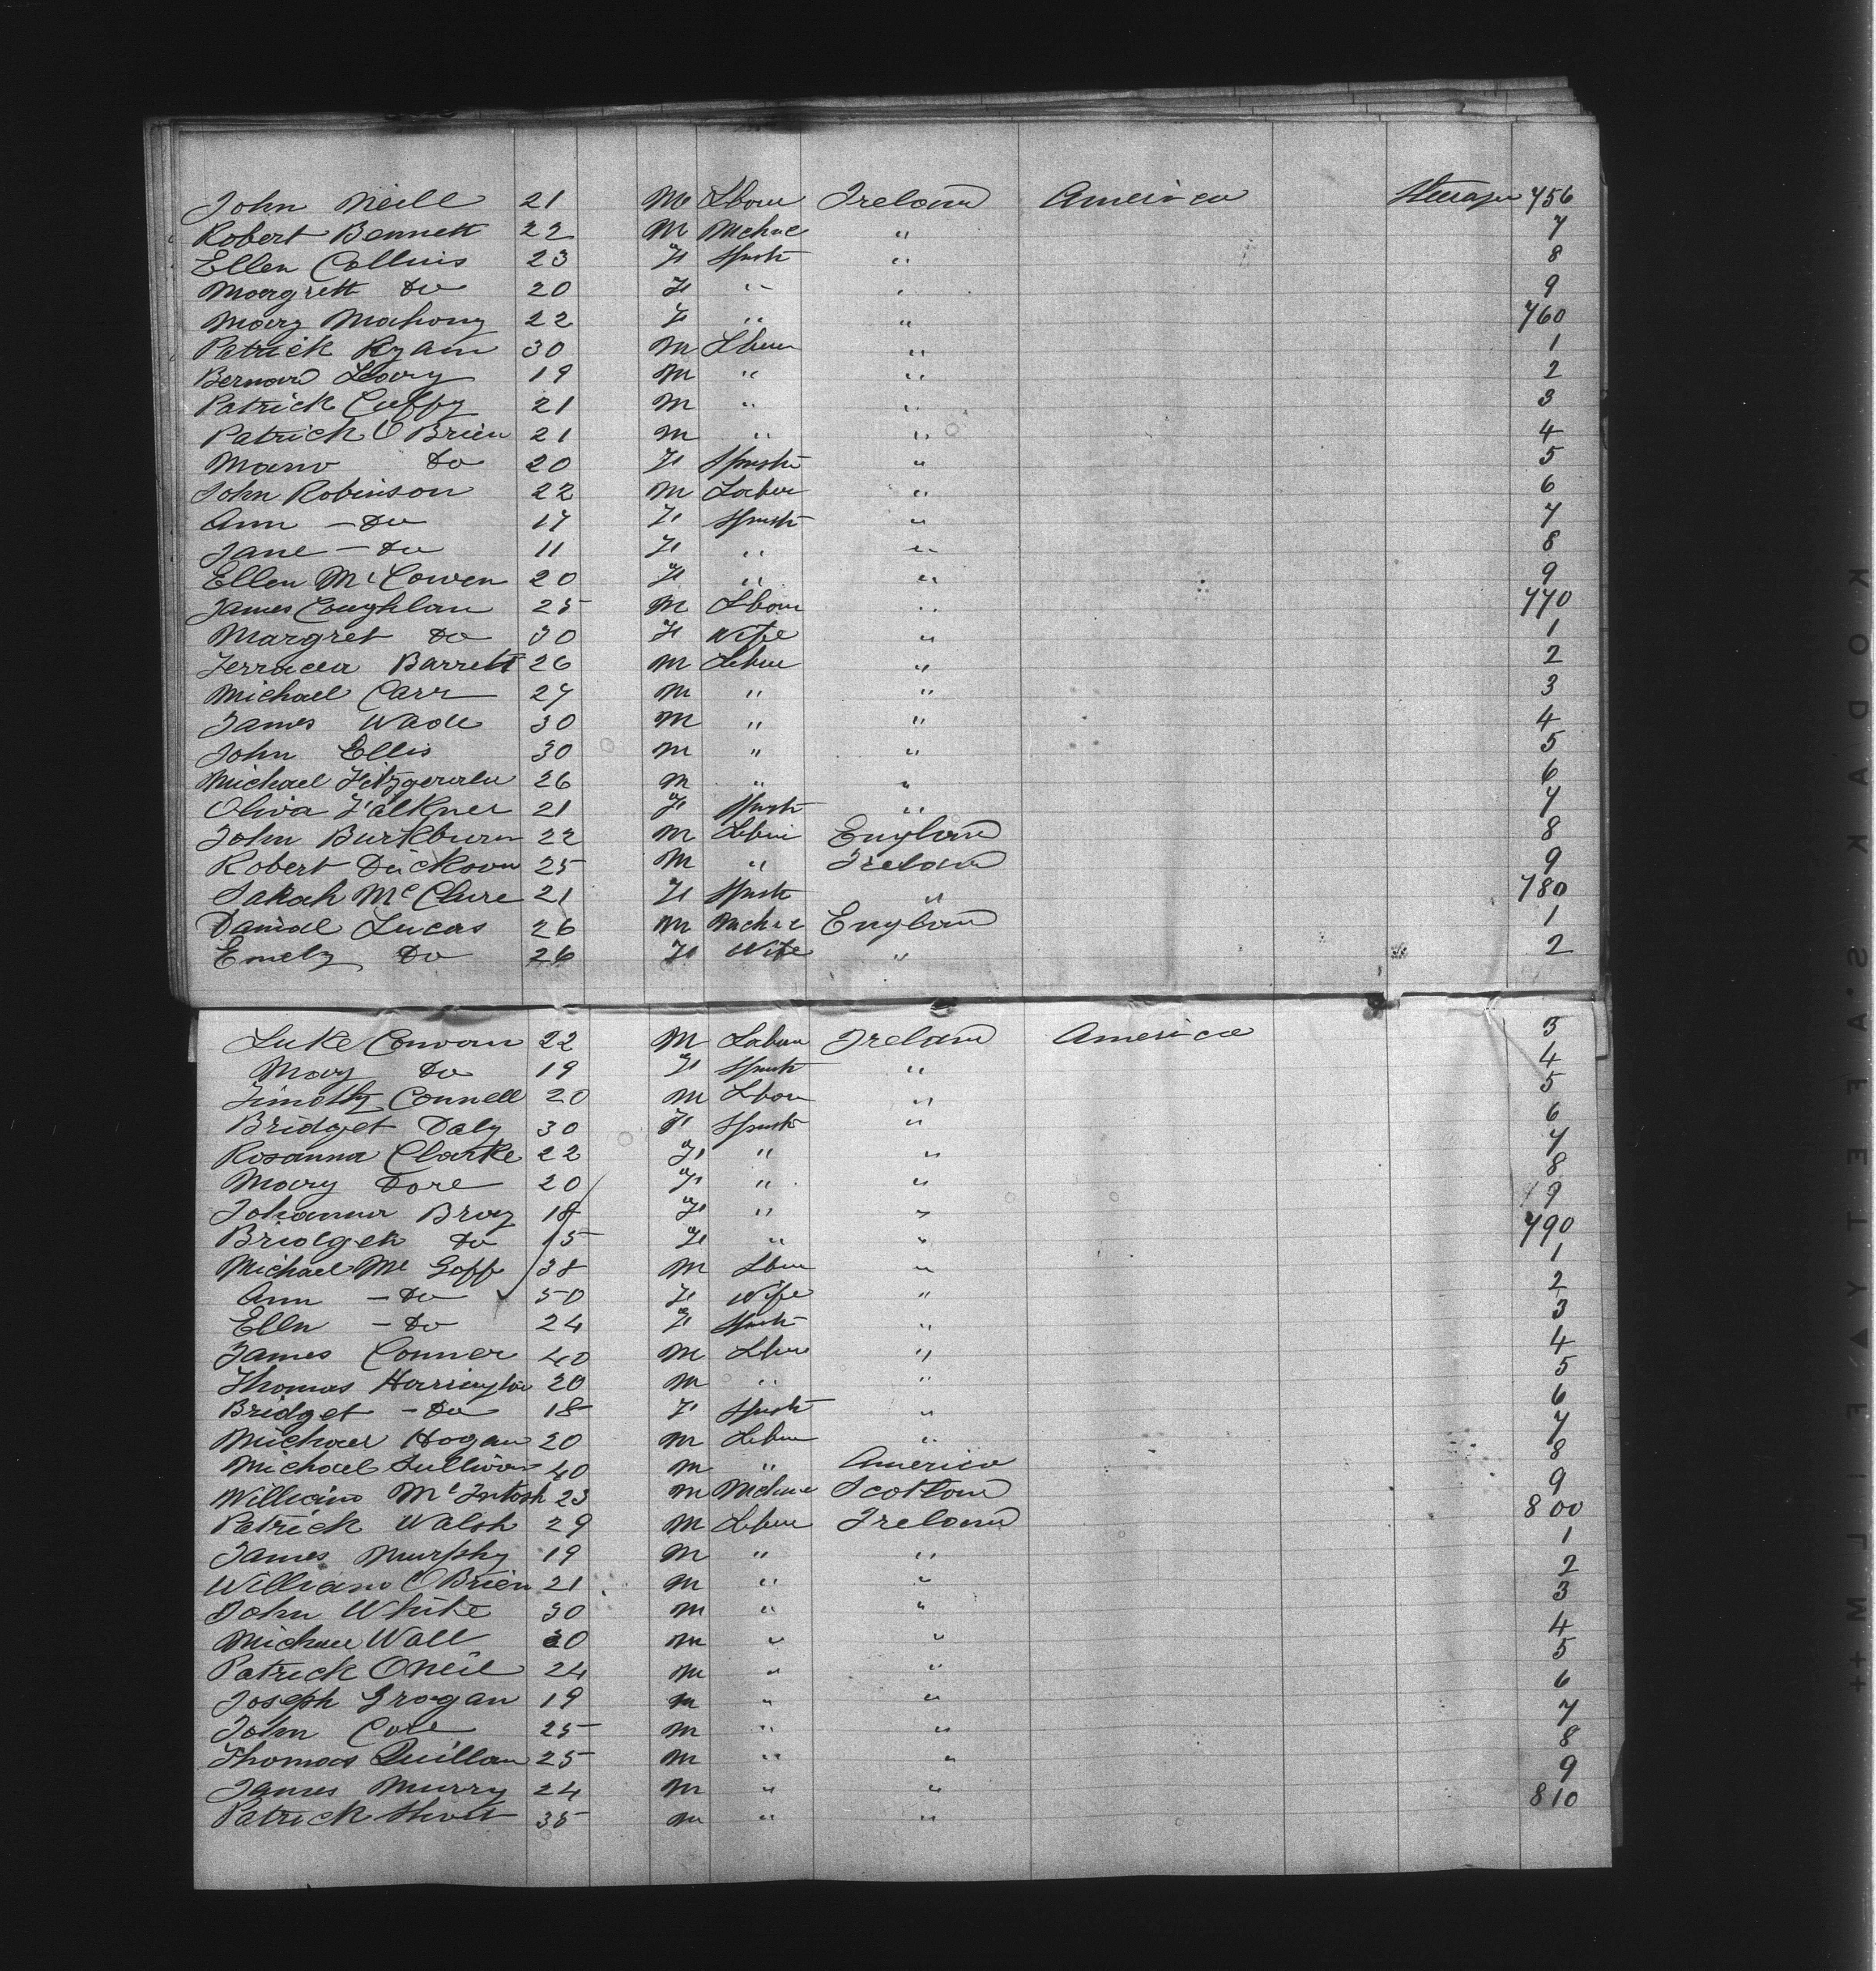 John Neill 21 M Lbour Ireland America Steerage 756
Robert Bennett 22 M Mchnc " 7
Ellen Collins 23 F Spnstr " 8
Margrett Do 20 F " " 9
Mary Mahony 22 F " " 760
Patrick Ryan 30 M Lbour " 1
Bernard Leary 19 M " " 2
Patrick Cuffy 21 M " " 3
Patrick O'Brien 21 M " " 4
Do 20 F Spnstr " 5
John Robinson 22 M Labur " 6
Ann - Do 17 F Spnstr " 7
Jane - Do 11 F " " 8
Ellen McCowen 20 F " " 9
James Coughlan 25 M Lbour " 770
Margret Do 30 F Wife " 1
Barrett 26 M Labur " 2
Michael Carr 27 M " " 3
James Wade 30 M " " 4
John Ellis 30 M " " 5
Michael Fitzgerald 26 M " " 6
Oliva Falkner 21 F Spnstr " 7
John Burkburn 22 M Labur England 8
Robert Dickson 25 M " Ireland 9
Sarah McClure 21 F Spnstr " 780
Danial Lucas 26 M Mchnc England 1
Emely Do 26 F Wife " 2
Luke Convan 22 M Labour Ireland America 3
Mary Do 19 F Spnstr " 4
Timothy Connell 20 M Lbour " 5
Bridget Daly 30 F Spnstr " 6
Rosanna Clarke 22 F " " 7
Mary Dore 20 F " " 8
Johanna Bray 18 F " " 9
Bridget Do 15 F " " 790
Michael Mc Goff 38 M Lbur " 1
Ann - Do 50 F Wife " 2
Ellen - Do 24 F Spnstr " 3
James Conner 40 M Lbur " 4
Thomas Harrington 20 M " " 5
Bridget - Do 18 F Spnstr " 6
Michael Hogan 20 M Labur " 7
Michael Sullivan 40 M " America 8
William McIntosh 23 M Mchnc Scotland 9
Patrick Walsh 29 M Labur Ireland 800
James Murphy 19 M " " 1
William O'Brien 21 M " " 2
John White 30 M " " 3
Michael Wall 30 M " " 4
Patrick ONeil 24 M " " 5
Joseph Grogan 19 M " " 6
John Core 25 M " " 7
Thomas Quillan 25 M " " 8
James Murry 24 M " " 9
Patrick Short 35 M " " 810
KODAK SAFETY FILM